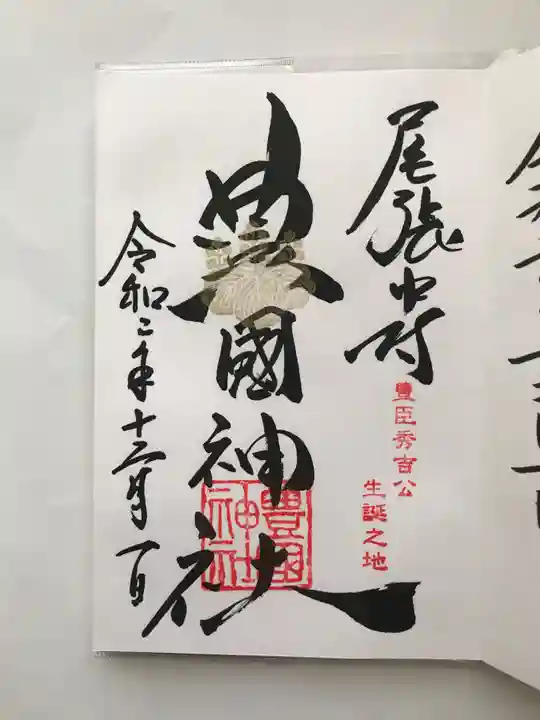 尾張中村
豊臣秀吉公
生誕之地
豊國神社
豊國神社
令和二年十二月一日